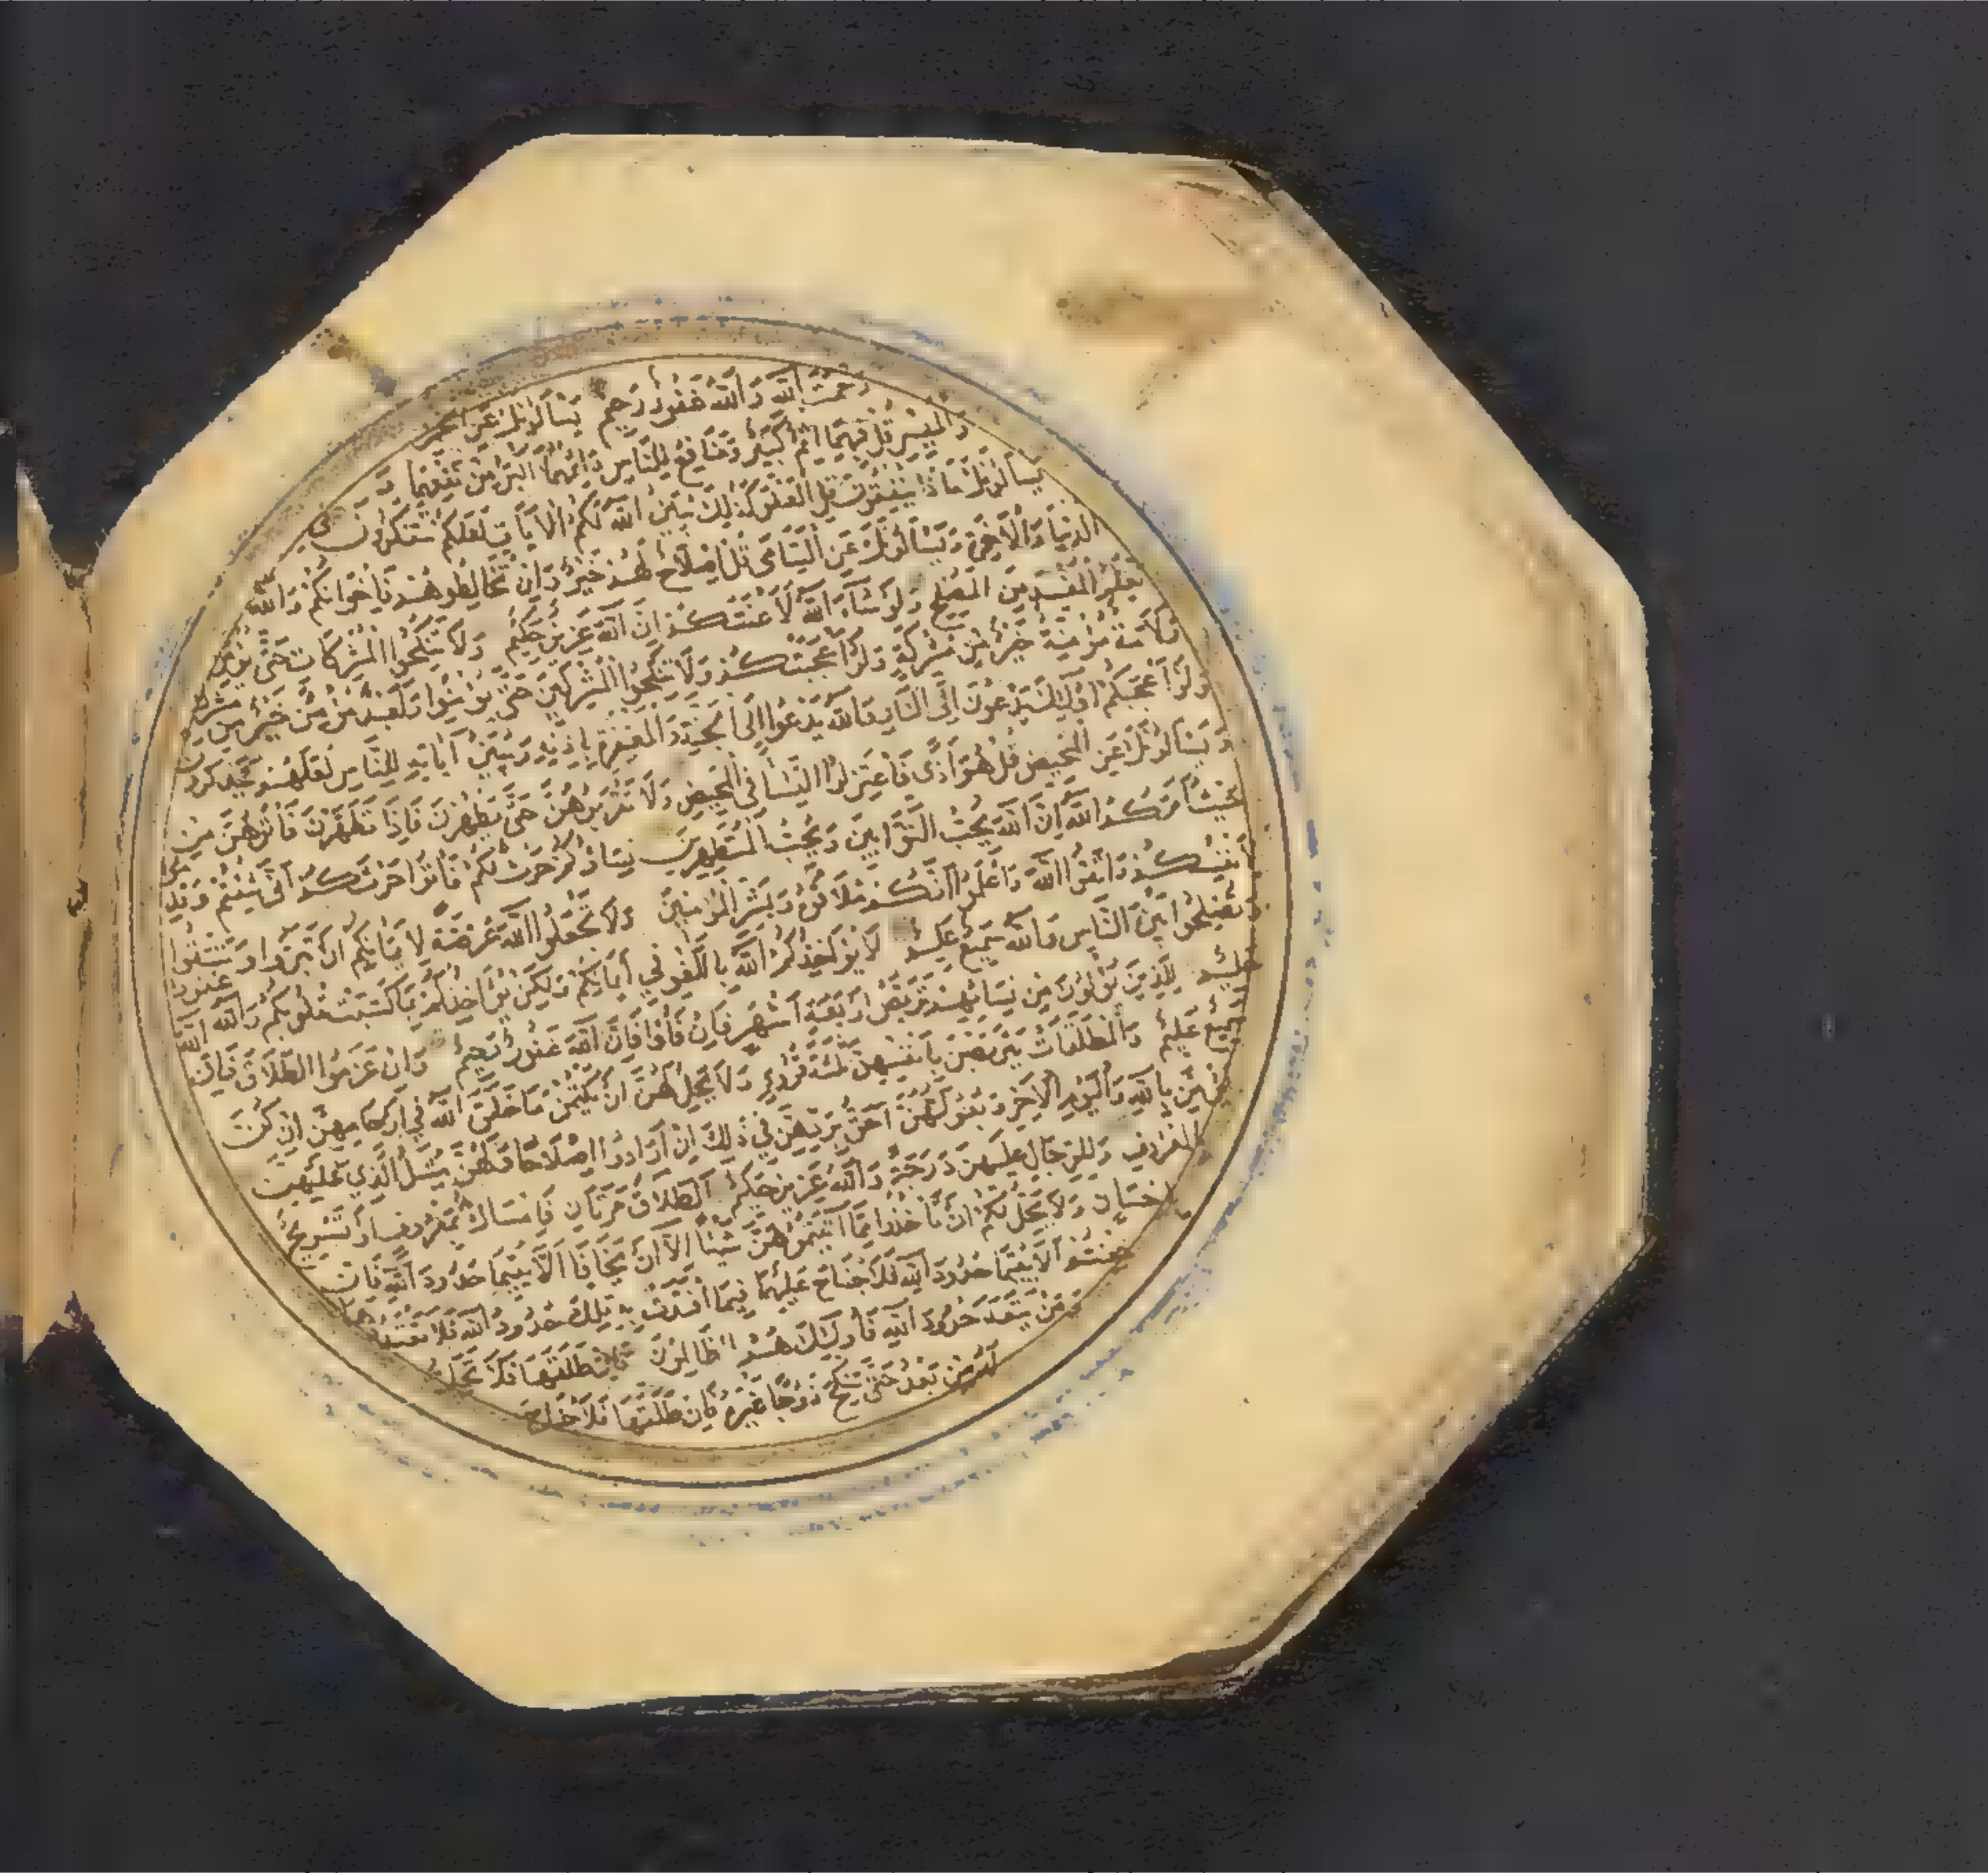 رَحْمَتَ اللهِ وَاللهُ غَفُورٌ رَحِيمٌ يَسْأَلُونَكَ عَنِ الْخَمْرِ
وَالْمَيْسِرِ قُلْ فِيهِمَا إِثْمٌ كَبِيرٌ وَمَنَافِعُ لِلنَّاسِ وَإِثْمُهُمَا أَكْبَرُ مِنْ نَفْعِهِمَا وَ
يَسْأَلُونَكَ مَاذَا يُنْفِقُونَ قُلِ الْعَفْوَ كَذَلِكَ يُبَيِّنُ اللهُ لَكُمُ الْآيَاتِ لَعَلَّكُمْ تَتَفَكَّرُونَ فِي
الدُّنْيَا وَالْآخِرَةِ وَيَسْأَلُونَكَ عَنِ الْيَتَامَى قُلْ إِصْلَاحٌ لَهُمْ خَيْرٌ وَإِنْ تُخَالِطُوهُمْ فَإِخْوَانُكُمْ وَاللهُ
يَعْلَمُ الْمُفْسِدَ مِنَ الْمُصْلِحِ وَلَوْ شَاءَ اللهُ لَأَعْنَتَكُمْ إِنَّ اللهَ عَزِيزٌ حَكِيمٌ وَلَا تَنْكِحُوا الْمُشْرِكَاتِ حَتَّى يُؤْمِنَّ
وَلَأَمَةٌ مُؤْمِنَةٌ خَيْرٌ مِنْ مُشْرِكَةٍ وَلَوْ أَعْجَبَتْكُمْ وَلَا تُنْكِحُوا الْمُشْرِكِينَ حَتَّى يُؤْمِنُوا وَلَعَبْدٌ مُؤْمِنٌ خَيْرٌ مِنْ مُشْرِكٍ
وَلَوْ أَعْجَبَكُمْ أُولَئِكَ يَدْعُونَ إِلَى النَّارِ وَاللهُ يَدْعُوا إِلَى الْجَنَّةِ وَالْمَغْفِرَةِ بِإِذْنِهِ وَيُبَيِّنُ آيَاتِهِ لِلنَّاسِ لَعَلَّهُمْ يَتَذَكَّرُونَ
وَيَسْأَلُونَكَ عَنِ الْمَحِيضِ قُلْ هُوَ أَذًى فَاعْتَزِلُوا النِّسَاءَ فِي الْمَحِيضِ وَلَا تَقْرَبُوهُنَّ حَتَّى يَطْهُرْنَ فَإِذَا تَطَهَّرْنَ فَأْتُوهُنَّ مِنْ
حَيْثُ أَمَرَكُمُ اللهُ إِنَّ اللهَ يُحِبُّ التَّوَّابِينَ وَيُحِبُّ الْمُتَطَهِّرِينَ نِسَاؤُكُمْ حَرْثٌ لَكُمْ فَأْتُوا حَرْثَكُمْ أَنَّى شِئْتُمْ وَقَدِّمُوا
لِأَنْفُسِكُمْ وَاتَّقُوا اللهَ وَاعْلَمُوا أَنَّكُمْ مُلَاقُوهُ وَبَشِّرِ الْمُؤْمِنِينَ وَلَا تَجْعَلُوا اللهَ عُرْضَةً لِأَيْمَانِكُمْ أَنْ تَبَرُّوا وَتَتَّقُوا
وَتُصْلِحُوا بَيْنَ النَّاسِ وَاللهُ سَمِيعٌ عَلِيمٌ لَا يُؤَاخِذُكُمُ اللهُ بِاللَّغْوِ فِي أَيْمَانِكُمْ وَلَكِنْ يُؤَاخِذُكُمْ بِمَا كَسَبَتْ قُلُوبُكُمْ وَاللهُ غَفُورٌ
حَلِيمٌ لِلَّذِينَ يُؤْلُونَ مِنْ نِسَائِهِمْ تَرَبُّصُ أَرْبَعَةِ أَشْهُرٍ فَإِنْ فَاءُوا فَإِنَّ اللهَ غَفُورٌ رَحِيمٌ وَإِنْ عَزَمُوا الطَّلَاقَ فَإِنَّ اللهَ
سَمِيعٌ عَلِيمٌ وَالْمُطَلَّقَاتُ يَتَرَبَّصْنَ بِأَنْفُسِهِنَّ ثَلَثَةَ قُرُوءٍ وَلَا يَحِلُّ لَهُنَّ أَنْ يَكْتُمْنَ مَا خَلَقَ اللهُ فِي أَرْحَامِهِنَّ إِنْ كُنَّ
يُؤْمِنَّ بِاللهِ وَالْيَوْمِ الْآخِرِ وَبُعُولَتُهُنَّ أَحَقُّ بِرَدِّهِنَّ فِي ذَلِكَ إِنْ أَرَادُوا إِصْلَاحًا وَلَهُنَّ مِثْلُ الَّذِي عَلَيْهِنَّ
بِالْمَعْرُوفِ وَلِلرِّجَالِ عَلَيْهِنَّ دَرَجَةٌ وَاللهُ عَزِيزٌ حَكِيمٌ الطَّلَاقُ مَرَّتَانِ فَإِمْسَاكٌ بِمَعْرُوفٍ أَوْ تَسْرِيحٌ
بِإِحْسَانٍ وَلَا يَحِلُّ لَكُمْ أَنْ تَأْخُذُوا مِمَّا آتَيْتُمُوهُنَّ شَيْئًا إِلَّا أَنْ يَخَافَا أَلَّا يُقِيمَا حُدُودَ اللهِ فَإِنْ
خِفْتُمْ أَلَّا يُقِيمَا حُدُودَ اللهِ فَلَا جُنَاحَ عَلَيْهِمَا فِيمَا افْتَدَتْ بِهِ تِلْكَ حُدُودُ اللهِ فَلَا تَعْتَدُوهَا
وَمَنْ يَتَعَدَّ حُدُودَ اللهِ فَأُولَئِكَ هُمُ الظَّالِمُونَ فَإِنْ طَلَّقَهَا فَلَا تَحِلُّ
لَهُ مِنْ بَعْدُ حَتَّى تَنْكِحَ زَوْجًا غَيْرَهُ فَإِنْ طَلَّقَهَا فَلَا جُنَاحَ